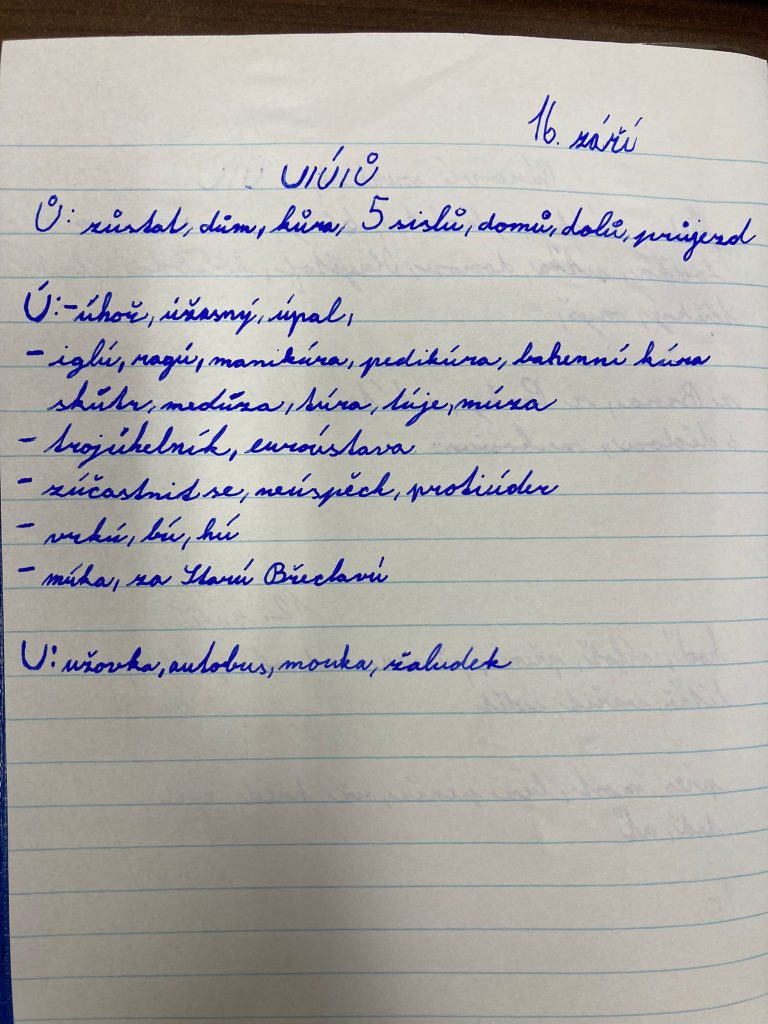 16. září
U/Ú/Ů
Ů: zůstat, dům, kůra, 5 sislů, domů, dolů, průjezd
Ú: - úhoř, úžasný, úpal,
- iglú, ragú, manikúra, pedikúra, bahenní kúra
skútr, medúza, túra, túje, múza
- trojúhelník, euroústava
- zúčastnit se, neúspěch, protiúder
- vrkú, bú, hú
- múka, za Starú Břeclavú
U: užovka, autobus, mouka, žaludek